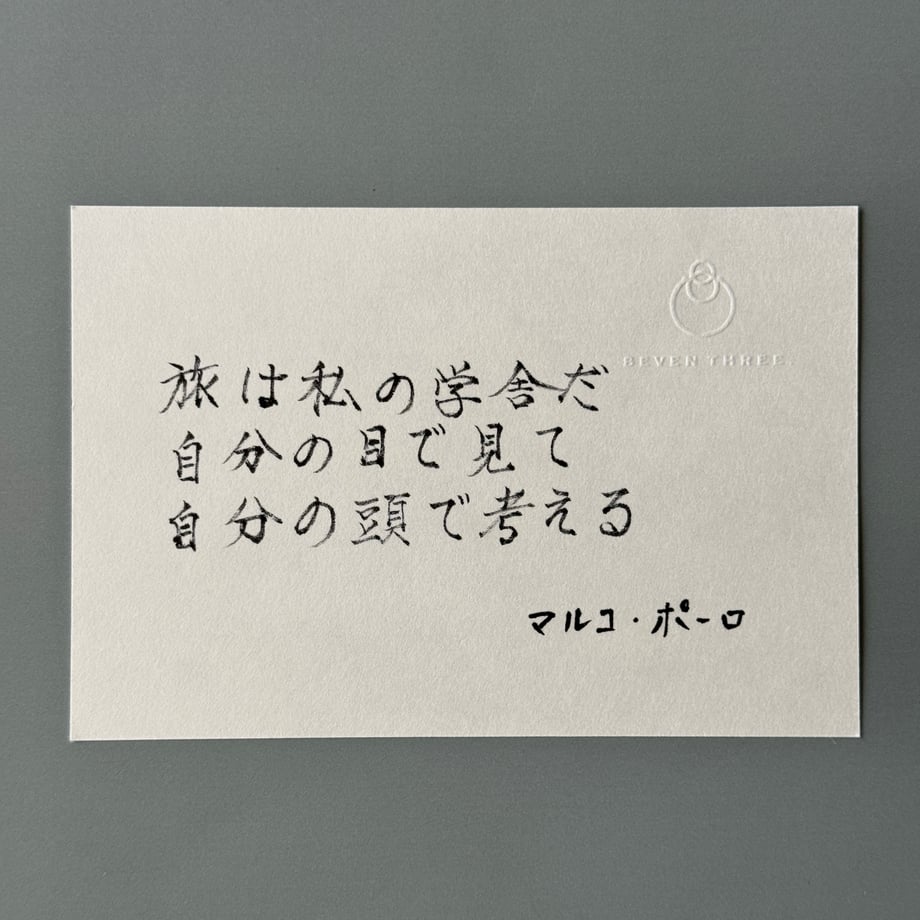 SEVEN THREE.
旅は私の学舎だ
自分の目で見て
自分の頭で考える
マルコ・ポーロ